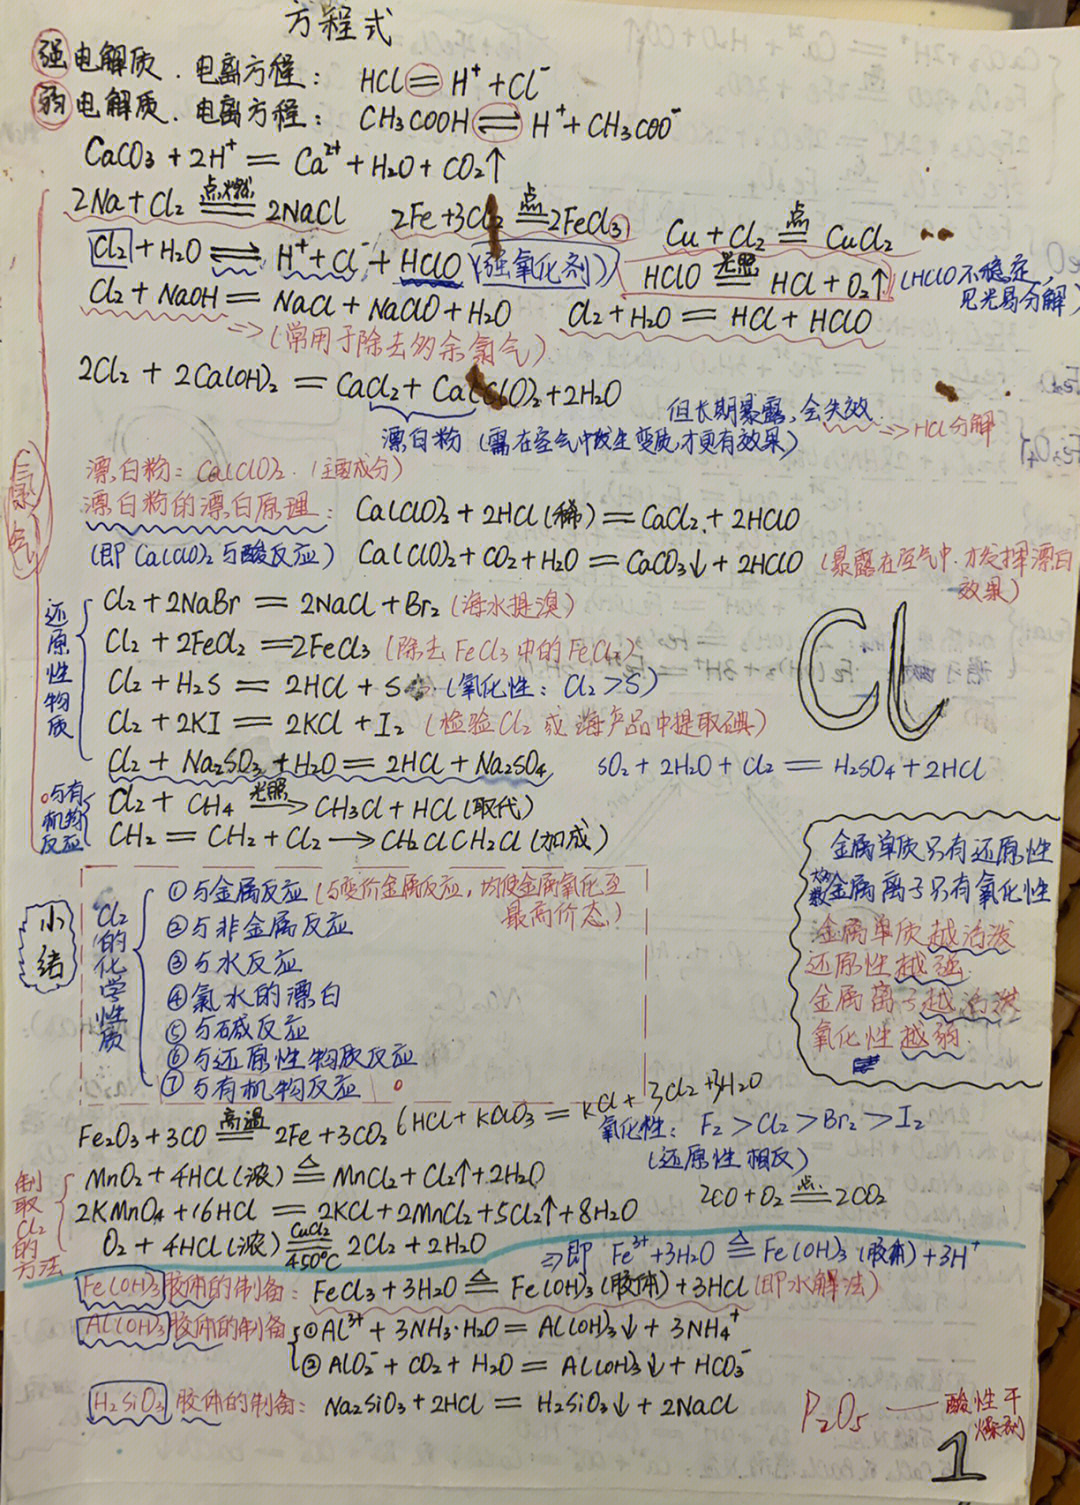 方程式
强电解质.电离方程: HCl ═ H⁺ + Cl⁻
弱电解质.电离方程: CH₃COOH ⇌ H⁺ + CH₃COO⁻
CaCO₃ + 2H⁺ ═ Ca²⁺ + H₂O + CO₂↑
2Na + Cl₂ ═点燃═ 2NaCl 2Fe + 3Cl₂ ═点═ 2FeCl₃ Cu + Cl₂ ═点═ CuCl₂
Cl₂ + H₂O ⇌ H⁺ + Cl⁻ + HClO (强氧化剂) HClO ═光照═ HCl + O₂↑ (HClO不稳定,见光易分解)
Cl₂ + NaOH ═ NaCl + NaClO + H₂O Cl₂ + H₂O ═ HCl + HClO
⇒ (常用于除去多余氯气)
2Cl₂ + 2Ca(OH)₂ ═ CaCl₂ + Ca(ClO)₂ + 2H₂O
但长期暴露,会失效 ⇒ HCl分解
漂白粉 (需在空气中发生变质,才更有效果)
氯气
漂白粉: Ca(ClO)₂. (主要成分)
漂白粉的漂白原理: Ca(ClO)₂ + 2HCl(稀) ═ CaCl₂ + 2HClO
(即Ca(ClO)₂与酸反应) Ca(ClO)₂ + CO₂ + H₂O ═ CaCO₃↓ + 2HClO (暴露在空气中.才发挥漂白效果)
还原性物质
Cl₂ + 2NaBr ═ 2NaCl + Br₂ (海水提溴)
Cl₂ + 2FeCl₂ ═ 2FeCl₃ (除去FeCl₃中的FeCl₂)
Cl₂ + H₂S ═ 2HCl + S (氧化性: Cl₂ > S)
Cl₂ + 2KI ═ 2KCl + I₂ (检验Cl₂或海产品中提取碘)
Cl
Cl₂ + Na₂SO₃ + H₂O ═ 2HCl + Na₂SO₄ SO₂ + 2H₂O + Cl₂ ═ H₂SO₄ + 2HCl
与有机物反应
Cl₂ + CH₄ —光照→ CH₃Cl + HCl (取代)
CH₂ ═ CH₂ + Cl₂ → CH₂ClCH₂Cl (加成)
金属单质只有还原性
大多数金属离子只有氧化性
金属单质越活泼
还原性越强.
金属离子越活泼
氧化性越弱.
小结
Cl₂的化学性质
①与金属反应 (与变价金属反应,均使金属氧化至最高价态.)
②与非金属反应
③与水反应
④氯水的漂白
⑤与碱反应
⑥与还原性物质反应
⑦与有机物反应
Fe₂O₃ + 3CO ═高温═ 2Fe + 3CO₂ 6HCl + KClO₃ = KCl + 3Cl₂ + 3H₂O
氧化性: F₂ > Cl₂ > Br₂ > I₂
(还原性相反)
制取Cl₂的方法
MnO₂ + 4HCl(浓) ═△═ MnCl₂ + Cl₂↑ + 2H₂O
2CO + O₂ ═点═ 2CO₂
2KMnO₄ + 16HCl ═ 2KCl + 2MnCl₂ + 5Cl₂↑ + 8H₂O
O₂ + 4HCl(浓) ═CuCl₂ 450℃═ 2Cl₂ + 2H₂O
⇒即 Fe³⁺ + 3H₂O ═△═ Fe(OH)₃(胶体) + 3H⁺
Fe(OH)₃胶体的制备: FeCl₃ + 3H₂O ═△═ Fe(OH)₃(胶体) + 3HCl (即水解法)
Al(OH)₃胶体的制备 ①Al³⁺ + 3NH₃·H₂O ═ Al(OH)₃↓ + 3NH₄⁺
②AlO₂⁻ + CO₂ + H₂O ═ Al(OH)₃↓ + HCO₃⁻
H₂SiO₃胶体的制备: Na₂SiO₃ + 2HCl ═ H₂SiO₃↓ + 2NaCl
P₂O₅ — 酸性干燥剂
1